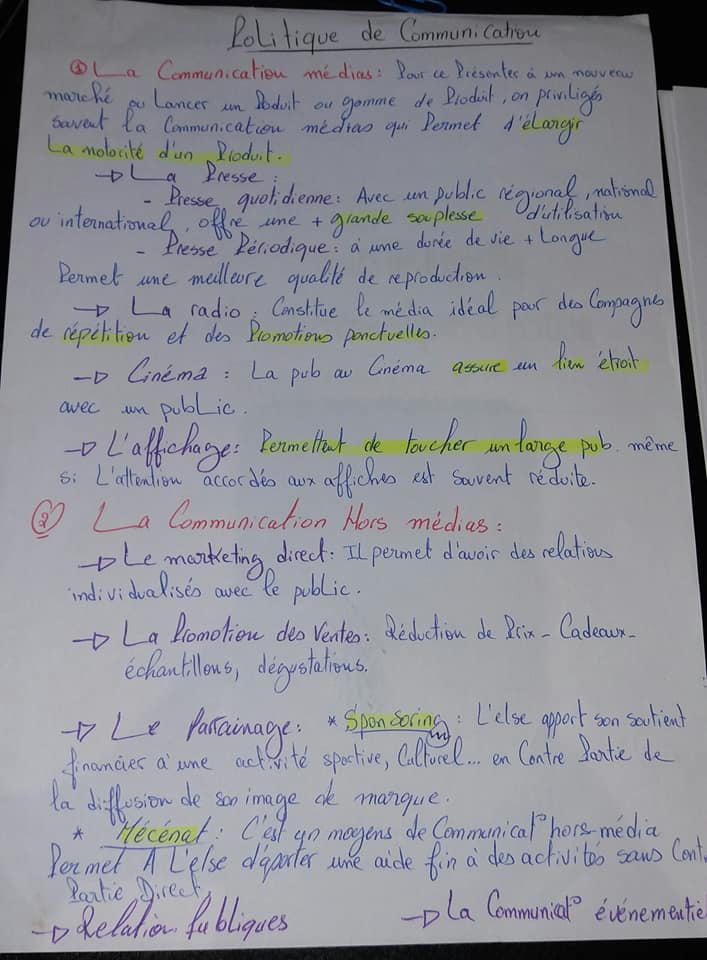 Politique de Communication
① La Communication médias: Pour ce Présenter à un nouveau
marché ou Lancer un Poduit ou gamme de Produit, on priviligés
savent la Communication médias qui Permet d'élargir
La notorité d'un Produit.
→ La Presse :
- Presse quotidienne: Avec un public régional, national
ou international, offre une + grande souplesse d'utilisation
- Presse Périodique: à une durée de vie + Longue
Permet une meilleure qualité de reproduction.
→ La radio : Constitue le média idéal pour des Compagnes
de répétition et des Promotions ponctuelles.
→ Cinéma : La pub au Cinéma assure un lien étroit
avec un public.
→ L'affichage: Permettent de toucher un large pub. même
si L'attention accordés aux affiches est souvent réduite.
② La Communication Hors médias :
→ Le marketing direct: IL permet d'avoir des relations
individualisés avec le public.
→ La Promotion des Ventes: Réduction de Prix - Cadeaux -
échantillons, dégustations.
→ Le Parrainage: * Sponsoring : L'else apport son soutient
financier à une activité sportive, Culturel... en Contre Partie de
la diffusion de son image de marque.
* Mécénat : C'est un moyens de Communicat° hors-média
Permet A L'else d'aporter une aide fin à des activités sans Cont.
Partie Direct,
→ Relation Publiques → La Communicat° événementiel